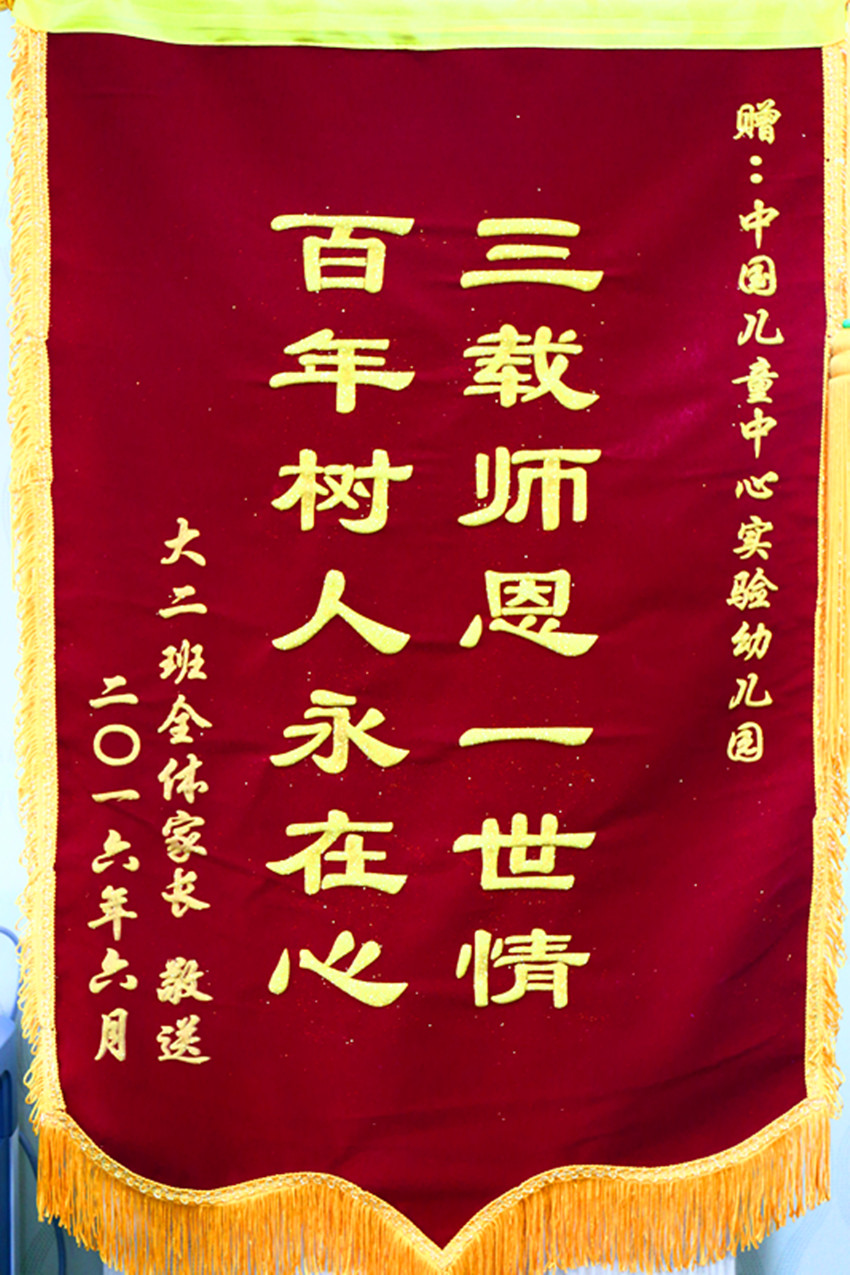 赠：中国儿童中心实验幼儿园
三载师恩一世情
百年树人永在心
大二班全体家长 敬送
二〇一六年六月